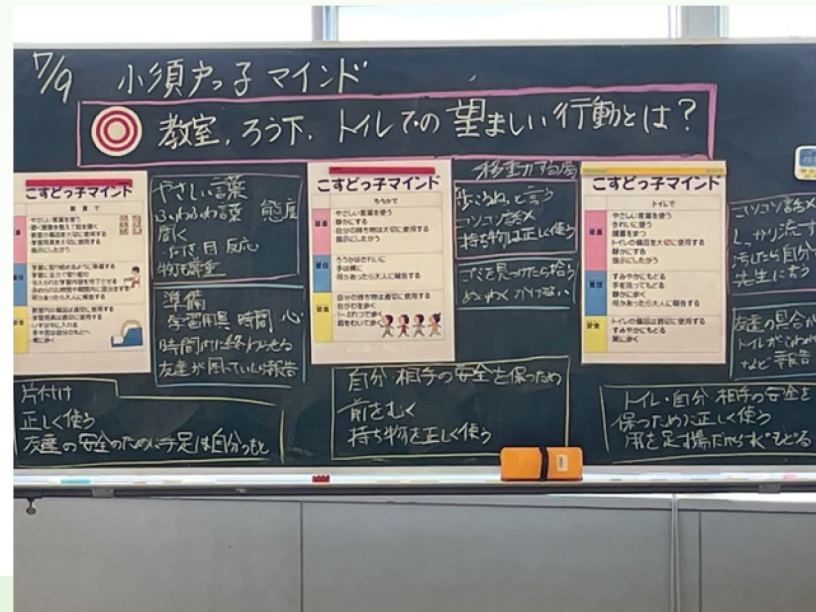 7/9 小須戸っ子マインド
教室、ろう下、トイレでの望ましい行動とは?
こすどっ子マインド
教室で
やさしい言葉を使う
学習用具を大切に使用する
指示にしたがう
安全
やさしい言葉
ふわふわ言葉 態度
聞く
目 反応
準備
学習用具 時間 心
時間内に終わらせる
友達が困っていたら報告
片付け
正しく使う
友達の安全のために手足は自分のもと
こすどっ子マインド
ろうかで
尊重
やさしい言葉を使う
静かにする
自分の持ち物は大切に使用する
指示にしたがう
責任
ろうかはきれいに
手は横に
何かあったら大人に報告する
安全
自分の持ち物は適切に使用する
右がわを歩く
前をむいて歩く
移動する
歩こうね。と言う
コソコソ話×
持ち物は正しく使う
ごみを見つけたら拾う
めいわくかけない
自分 相手の安全を保つため
前をむく
持ち物を正しく使う
こすどっ子マインド
トイレで
尊重
やさしい言葉を使う
きれいに使う
順番をまつ
トイレの備品を大切に使用する
静かにする
指示にしたがう
責任
すみやかにもどる
手を洗ってもどる
静かに歩く
何かあったら大人に報告する
安全
トイレの備品は適切に使用する
すみやかにもどる
常に歩く
コソコソ話×
しっかり流す
汚したら自分
先生に言う
友達の具合が
トイレがこわれ
など報告
トイレ・自分 相手の安全を
保つために正しく使う
用を足す場だからすぐもどる